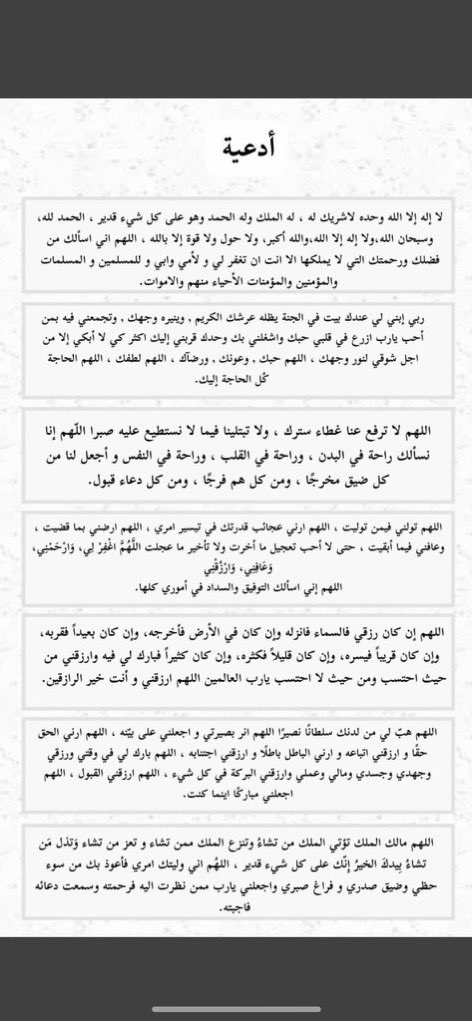 أدعية
لا إله إلا الله وحده لاشريك له ، له الملك وله الحمد وهو على كل شيء قدير ، الحمد لله،
وسبحان الله،ولا إله إلا الله،والله أكبر، ولا حول ولا قوة إلا بالله ، اللهم اني اسألك من
فضلك ورحمتك التي لا يملكها الا انت ان تغفر لي و لأمي وابي و للمسلمين و المسلمات
والمؤمنين والمؤمنات الأحياء منهم والاموات.
ربي إبني لي عندك بيت في الجنة يظله عرشك الكريم , وينيره وجهك , وتجمعني فيه بمن
أحب يارب ازرع في قلبي حبك واشغلني بك وحدك قربني إليك اكثر كي لا أبكي إلا من
اجل شوقي لنور وجهك ، اللهم حبك , وعونك , ورضآك ، اللهم لطفك ، اللهم الحاجة
كُل الحاجة إليك.
اللهم لا ترفع عنا غطاء سترك ، ولا تبتلينا فيما لا نستطيع عليه صبرا اللّهم إنا
نسألك راحة في البدن ، وراحة في القلب ، وراحة في النفس و أجعل لنا من
كل ضيق مخرجًا ، ومن كل هم فرجًا ، ومن كل دعاء قبول.
اللهم تولني فيمن توليت ، اللهم ارني عجائب قدرتك في تيسير امري ، اللهم ارضني بما قضيت ،
وعافني فيما أبقيت ، حتى لا أحب تعجيل ما أخرت ولا تأخير ما عجلت اللَّهُمَّ اغْفِرْ لِي، وَارْحَمْنِي،
وَعَافِنِي، وَارْزُقْنِي
اللهم إني اسألك التوفيق والسداد في أموري كلها.
اللهم إن كان رزقي فالسماء فانزله وإن كان في الأرض فأخرجه، وإن كان بعيداً فقربه،
وإن كان قريباً فيسره، وإن كان قليلاً فكثره، وإن كان كثيراً فبارك لي فيه وارزقني من
حيث احتسب ومن حيث لا احتسب يارب العالمين اللهم ارزقني و أنت خير الرازقين.
اللهم هبّ لي من لدنك سلطانًا نصيرًا اللهم انر بصيرتي و اجعلني على بيّنه ، اللهم ارني الحق
حقًا و ارزقني اتباعه و ارني الباطل باطلًا و ارزقني اجتنابه ، اللهم بارك لي في وقتي ورزقي
وجهدي وجسدي ومالي وعملي وارزقني البركة في كل شيء ، اللهم ارزقني القبول ، اللهم
اجعلني مباركًا اينما كنت.
اللهم مالك الملك تؤتي الملك من تشاءُ وتنزع الملك ممن تشاء و تعز من تشاء وَتذل مَن
تشاءُ بِيدكَ الخيرُ إِنَّك على كل شيء قدير ، اللهُم اني وليتك امري فأعوذ بك من سوء
حظي وضيق صدري و فراغ صبري واجعلني يارب ممن نظرت اليه فرحمته وسمعت دعائه
فاجبته.